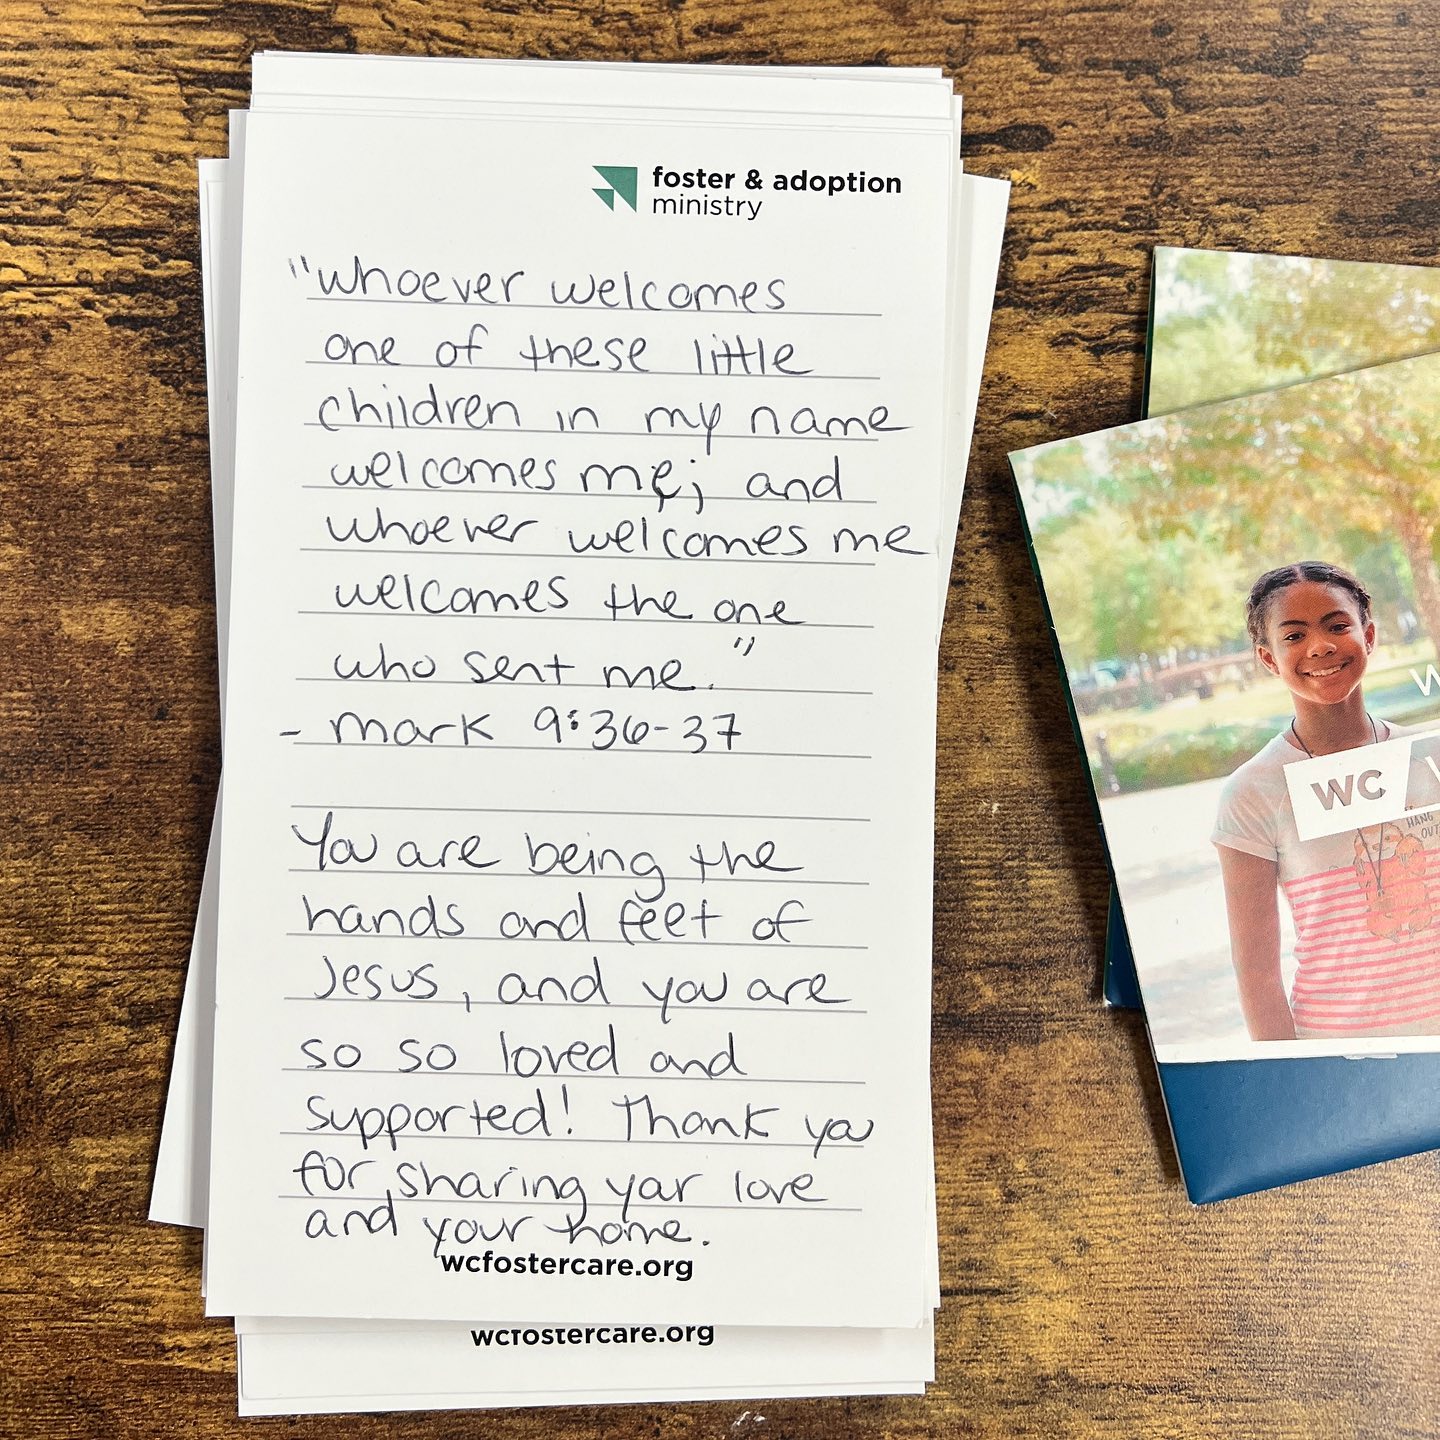 foster & adoption
ministry
"Whoever welcomes
one of these little
children in my name
welcomes me; and
whoever welcomes me
welcomes the one
who sent me."
- Mark 9:36-37
You are being the
hands and feet of
Jesus, and you are
so so loved and
supported! Thank you
for sharing your love
and your home.
wcfostercare.org
wcfostercare.org
W
WC
HANG
OUT